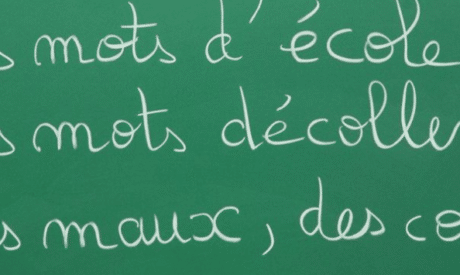 s mots d'école
s mots décolle
s maux, des co